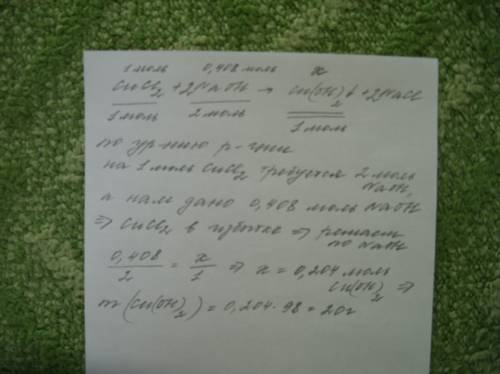 1 моль 0,408 моль x
CuCl₂ + 2NaOH → Cu(OH)₂↓ + 2NaCl
1 моль 2 моль 1 моль
по ур-нию р-ции
на 1 моль CuCl₂ требуется 2 моль NaOH,
а нам дано 0,408 моль NaOH
⇒ CuCl₂ в избытке ⇒ решаем по NaOH
0,408/2 = x/1 ⇒ x = 0,204 моль Cu(OH)₂ ⇒
m(Cu(OH)₂) = 0,204·98 = 20г